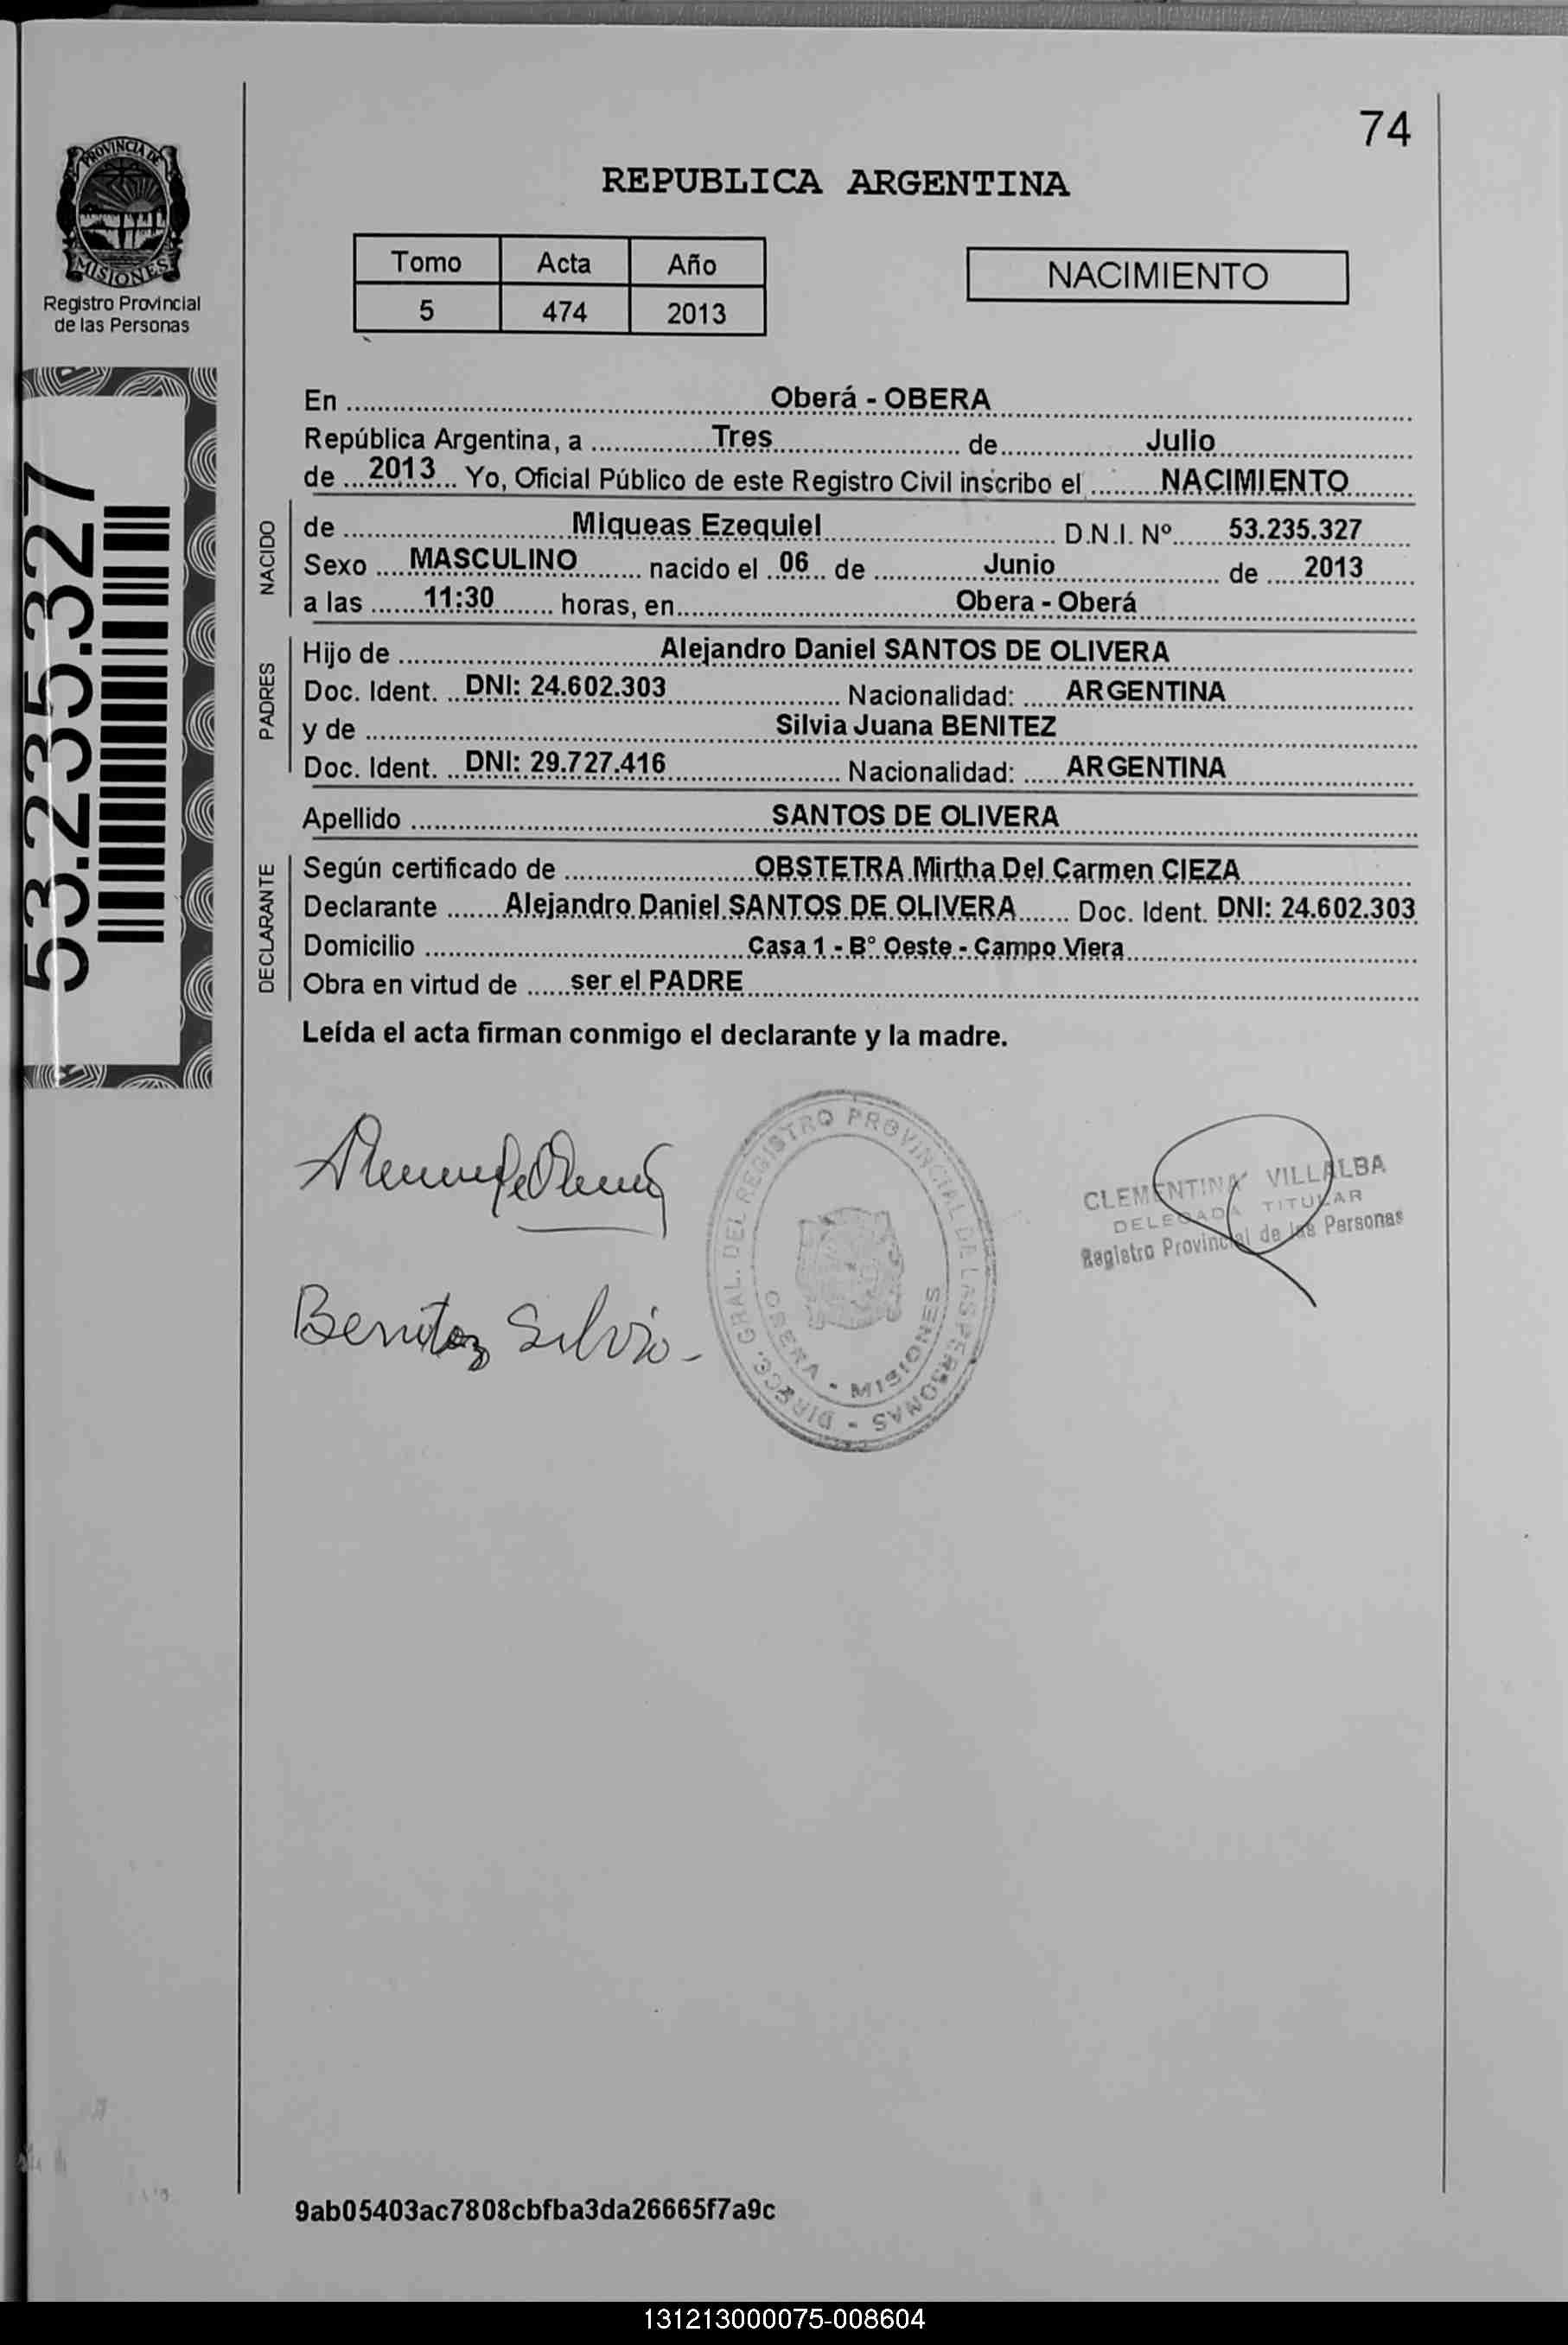 74
REPUBLICA ARGENTINA
PROVINCIA DE
MISIONES
Registro Provincial
de las Personas
Tomo Acta Año
5 474 2013
NACIMIENTO
53.235.327
En Oberá - OBERA
República Argentina, a Tres de Julio
de 2013 Yo, Oficial Público de este Registro Civil inscribo el NACIMIENTO
NACIDO
de Miqueas Ezequiel D.N.I. Nº 53.235.327
Sexo MASCULINO nacido el 06 de Junio de 2013
a las 11:30 horas, en Obera - Oberá
PADRES
Hijo de Alejandro Daniel SANTOS DE OLIVERA
Doc. Ident. DNI: 24.602.303 Nacionalidad: ARGENTINA
y de Silvia Juana BENITEZ
Doc. Ident. DNI: 29.727.416 Nacionalidad: ARGENTINA
Apellido SANTOS DE OLIVERA
DECLARANTE
Según certificado de OBSTETRA Mirtha Del Carmen CIEZA
Declarante Alejandro Daniel SANTOS DE OLIVERA Doc. Ident. DNI: 24.602.303
Domicilio Casa 1 - B° Oeste - Campo Viera
Obra en virtud de ser el PADRE
Leída el acta firman conmigo el declarante y la madre.
Benitez Silvia
DIRECC. GRAL. DEL REGISTRO PROVINCIAL DE LAS PERSONAS -
OBERA - MISIONES
CLEMENTINA VILLALBA
DELEGADA TITULAR
Registro Provincial de las Personas
9ab05403ac7808cbfba3da26665f7a9c
131213000075-008604